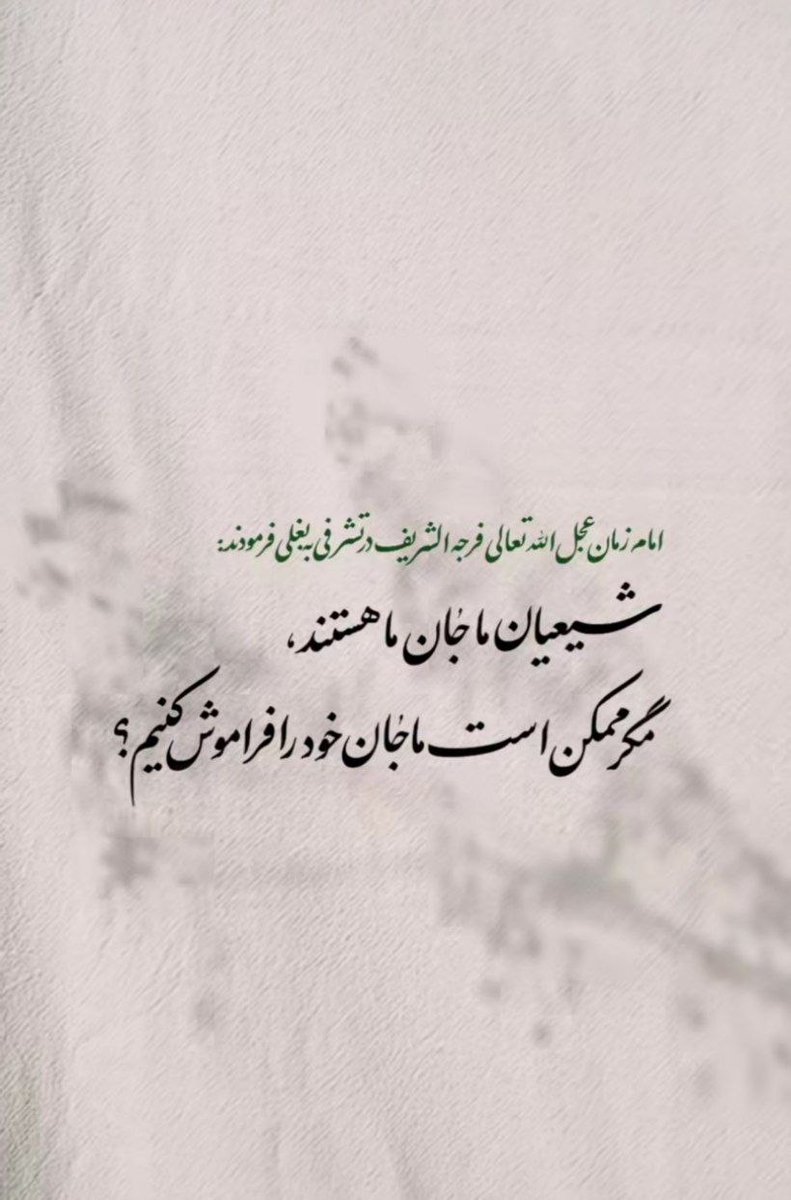 امام زمان عجل الله تعالی فرجه الشریف در تشرفی به بغلی فرمودند:
شیعیان ما جان ما هستند،
مگر ممکن است ما جان خود را فراموش کنیم؟